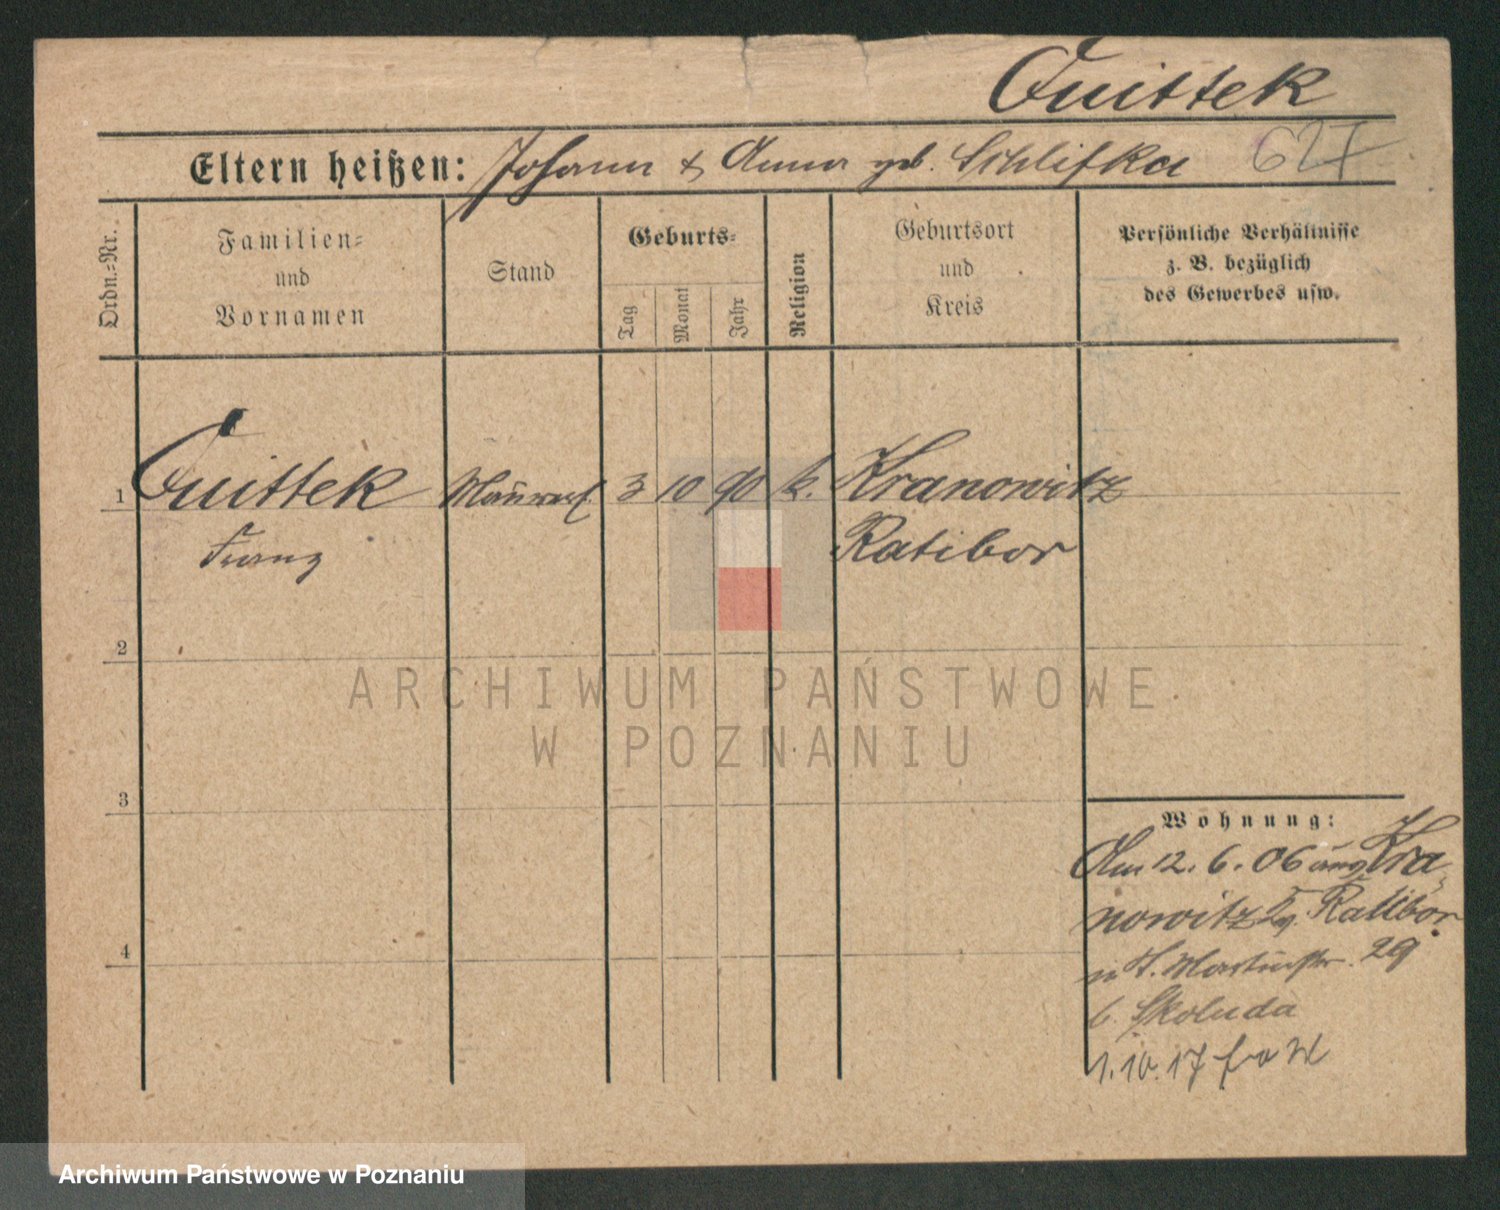 Quittek
627
Eltern heißen: Johann & Anna geb. Schlifka
Ordn.-Nr.
Familien-
und
Vornamen
Stand
Geburts-
Tag
Monat
Jahr
Religion
Geburtsort
und
Kreis
Persönliche Verhältnisse
z. B. bezüglich
des Gewerbes usw.
1 Quittek 3 10 90 k. Kranowitz
Franz Ratibor
2
3
4
Wohnung:
Am 12. 6. 06 aus Kra-
nowitz Ratibor
in St. Martinstr. 29
b. Skoluda
1.10.17
ARCHIWUM PAŃSTWOWE
W POZNANIU
Archiwum Państwowe w Poznaniu